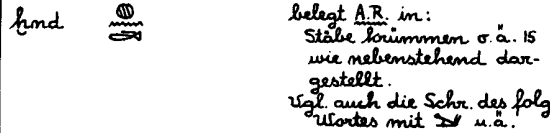 ḫnd 𓐍𓈖𓂧 belegt A.R. in:
Stäbe krümmen o.ä. 15
wie nebenstehend dar-
gestellt.
Vgl. auch die Schr. des folg
Wortes mit u.ä.